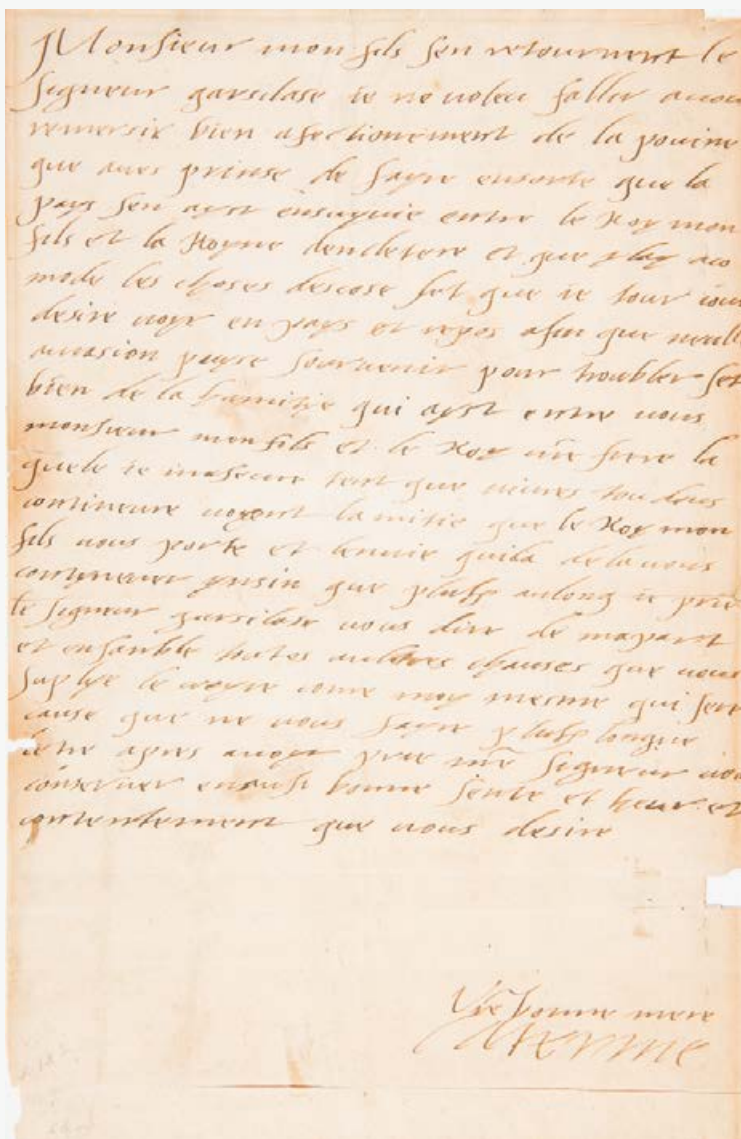 Monsieur mon fils sen retournent le
signeur garsilase ie ne voleu fallir avous
remersie bien afectionement de la pouine
que aves prinse de fayre ensorte que la
pays sen ayst ensuyuie entre le Roy mon
fils et la Royne dencletere et que aco
mode les choses descose set que ie tour iour
desire voyr en pays et repos afin que neulle
aucasion puyse sourvenir pour troubler set
bien de la hamitie qui ayst entre vous
monsieur mon fils et le Roy vre frere la
quele ie maseure tent que viures tou deus
contineure voyent lamitie que le Roy mon
fils vous porte et lenuie quila de la vous
contyneuer ynsin que plulz aulong ie prie
le signeur garsilase vous dire de mapart
et ensanble toutes aultres chauses que vous
suplye le croyre come moy mesme qui sera
cause que ne vous fayre plulz longue
letre apres avoyr prie nre signeur vou
conserver enausi bonne sente et heur et
contentement que vous desire
Vre bonne mere
Caterine